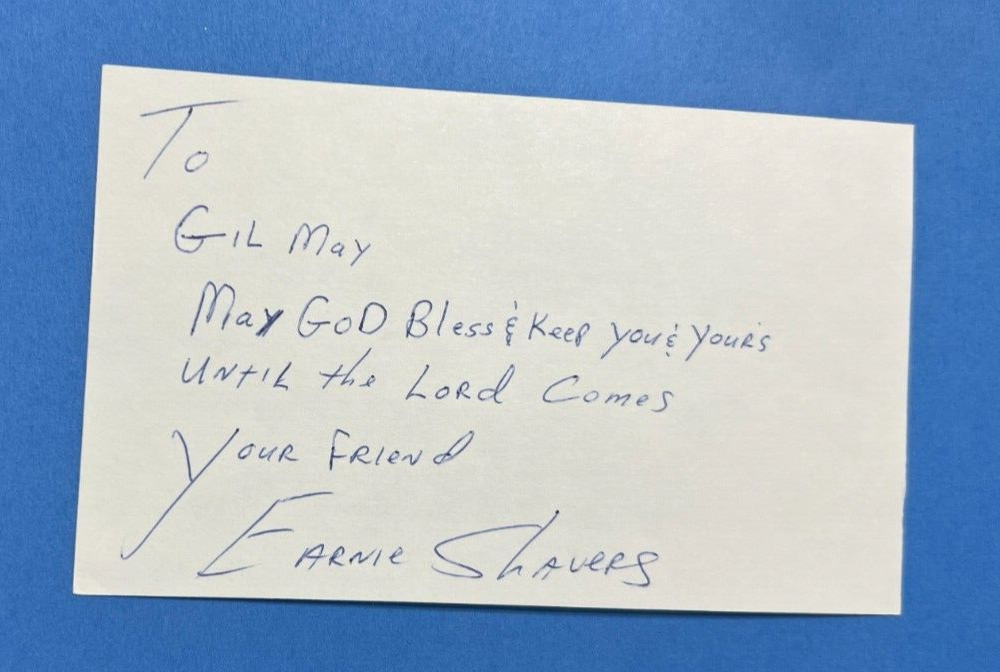 To
Gil May
May GoD Bless & Keep you & your's
until the Lord Comes
Your Friend
Earnie Shavers